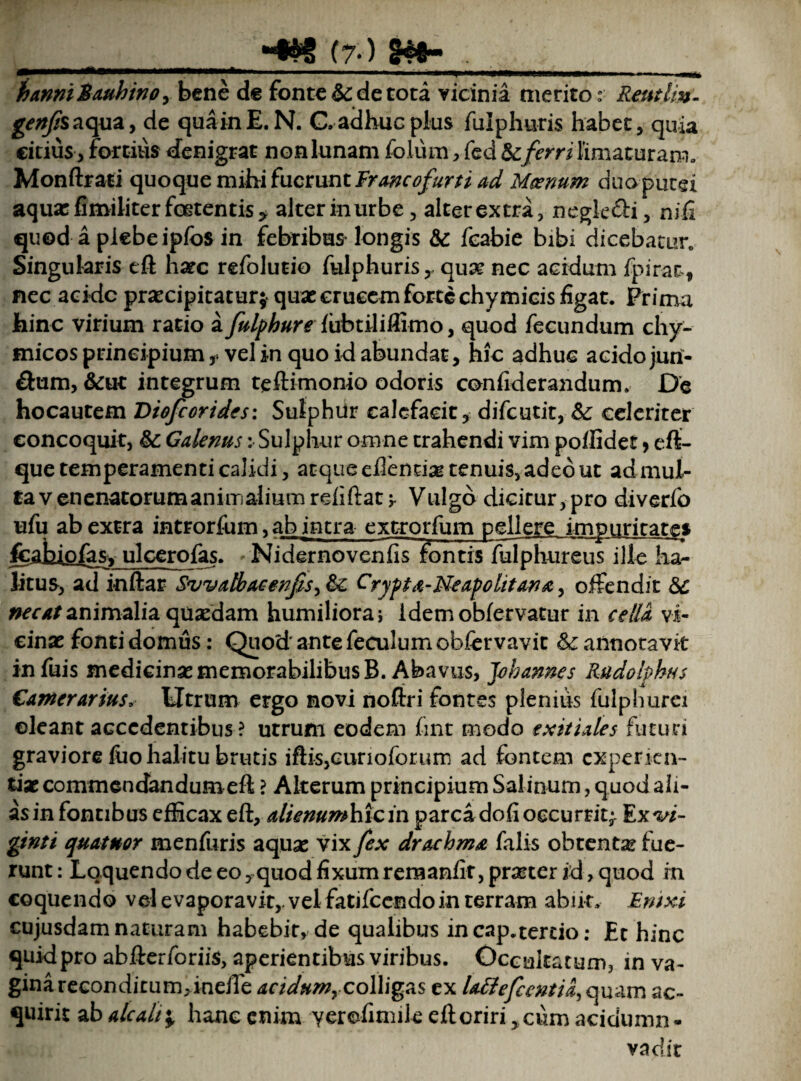 (7.)
hanni Bauhino, benè de fonte & de totâ viciniâ merito: Reutlin-
gensis aqua, de quâ in E. N. C. adhuc plus sulphuris habet, quia
citiùs, fortiùs denigrat non lunam solùm, sed & ferri limaturam.
Monstrati quoque mihi fuerunt Francofurti ad Mœnum duo putei
aquæ similiter fœtentis, alter in urbe, alter extrà, neglecti, nisi
quod à plebe ipsos in febribus longis & scabie bibi dicebatur.
Singularis est hæc resolutio sulphuris, quæ nec acidum spirat,
nec acidè præcipitatur; quæ crucem fortè chymicis figat. Prima
hinc virium ratio à sulphure subtilissimo, quod secundum chy-
micos principium, vel in quo id abundat, hîc adhuc acido jun-
ctum, & ut integrum testimonio odoris considerandum. De
hoc autem Dioscorides: Sulphur calefacit, discutit, & celeriter
concoquit, & Galenus: Sulphur omne trahendi vim possidet, est-
que temperamenti calidi, atque essentiæ tenuis, adeò ut ad mul-
ta v enenatorum animalium resistat; Vulgò dicitur, pro diverso
usu ab extra introrsum, ab intra extrorsum pellere impuritates
scabiosas, ulcerosas. Nidernovensis fontis sulphureus ille ha-
litus, ad instar Svvalbacensis, & Crypta-Neapolitana, offendit &
necat animalia quædam humiliora; idem observatur in cellâ vi-
cinæ fonti domûs: Quod ante seculum observavit & annotavit
in suis medicinæ memorabilibus B. Abavus, Johannes Rudolphus
Camerarius. Utrum ergo novi nostri fontes pleniùs sulphurei
oleant accedentibus? utrum eodem sint modo exitiales futuri
graviore suo halitu brutis istis, curiosorum ad fontem experien-
tiæ commendandum est? Alterum principium Salinum, quod ali-
às in fontibus efficax est, alienum hîc in parcâ dosi occurrit; Ex vi-
ginti quatuor mensuris aquæ vix sex drachmæ salis obtentæ fue-
runt: Loquendo de eo, quod fixum remansit, præter id, quod in
coquendo vel evaporavit, vel fatiscendo in terram abiit. Enixi
cujusdam naturam habebit, de qualibus in cap. tertio: Et hinc
quid pro absterforiis, aperientibus viribus. Occultatum, in va-
ginâ reconditum, inesse acidum, colligas ex lactescentiâ, quam ac-
quirit ab alcali; hanc enim verosimile est oriri, cùm acidum n-
vadit